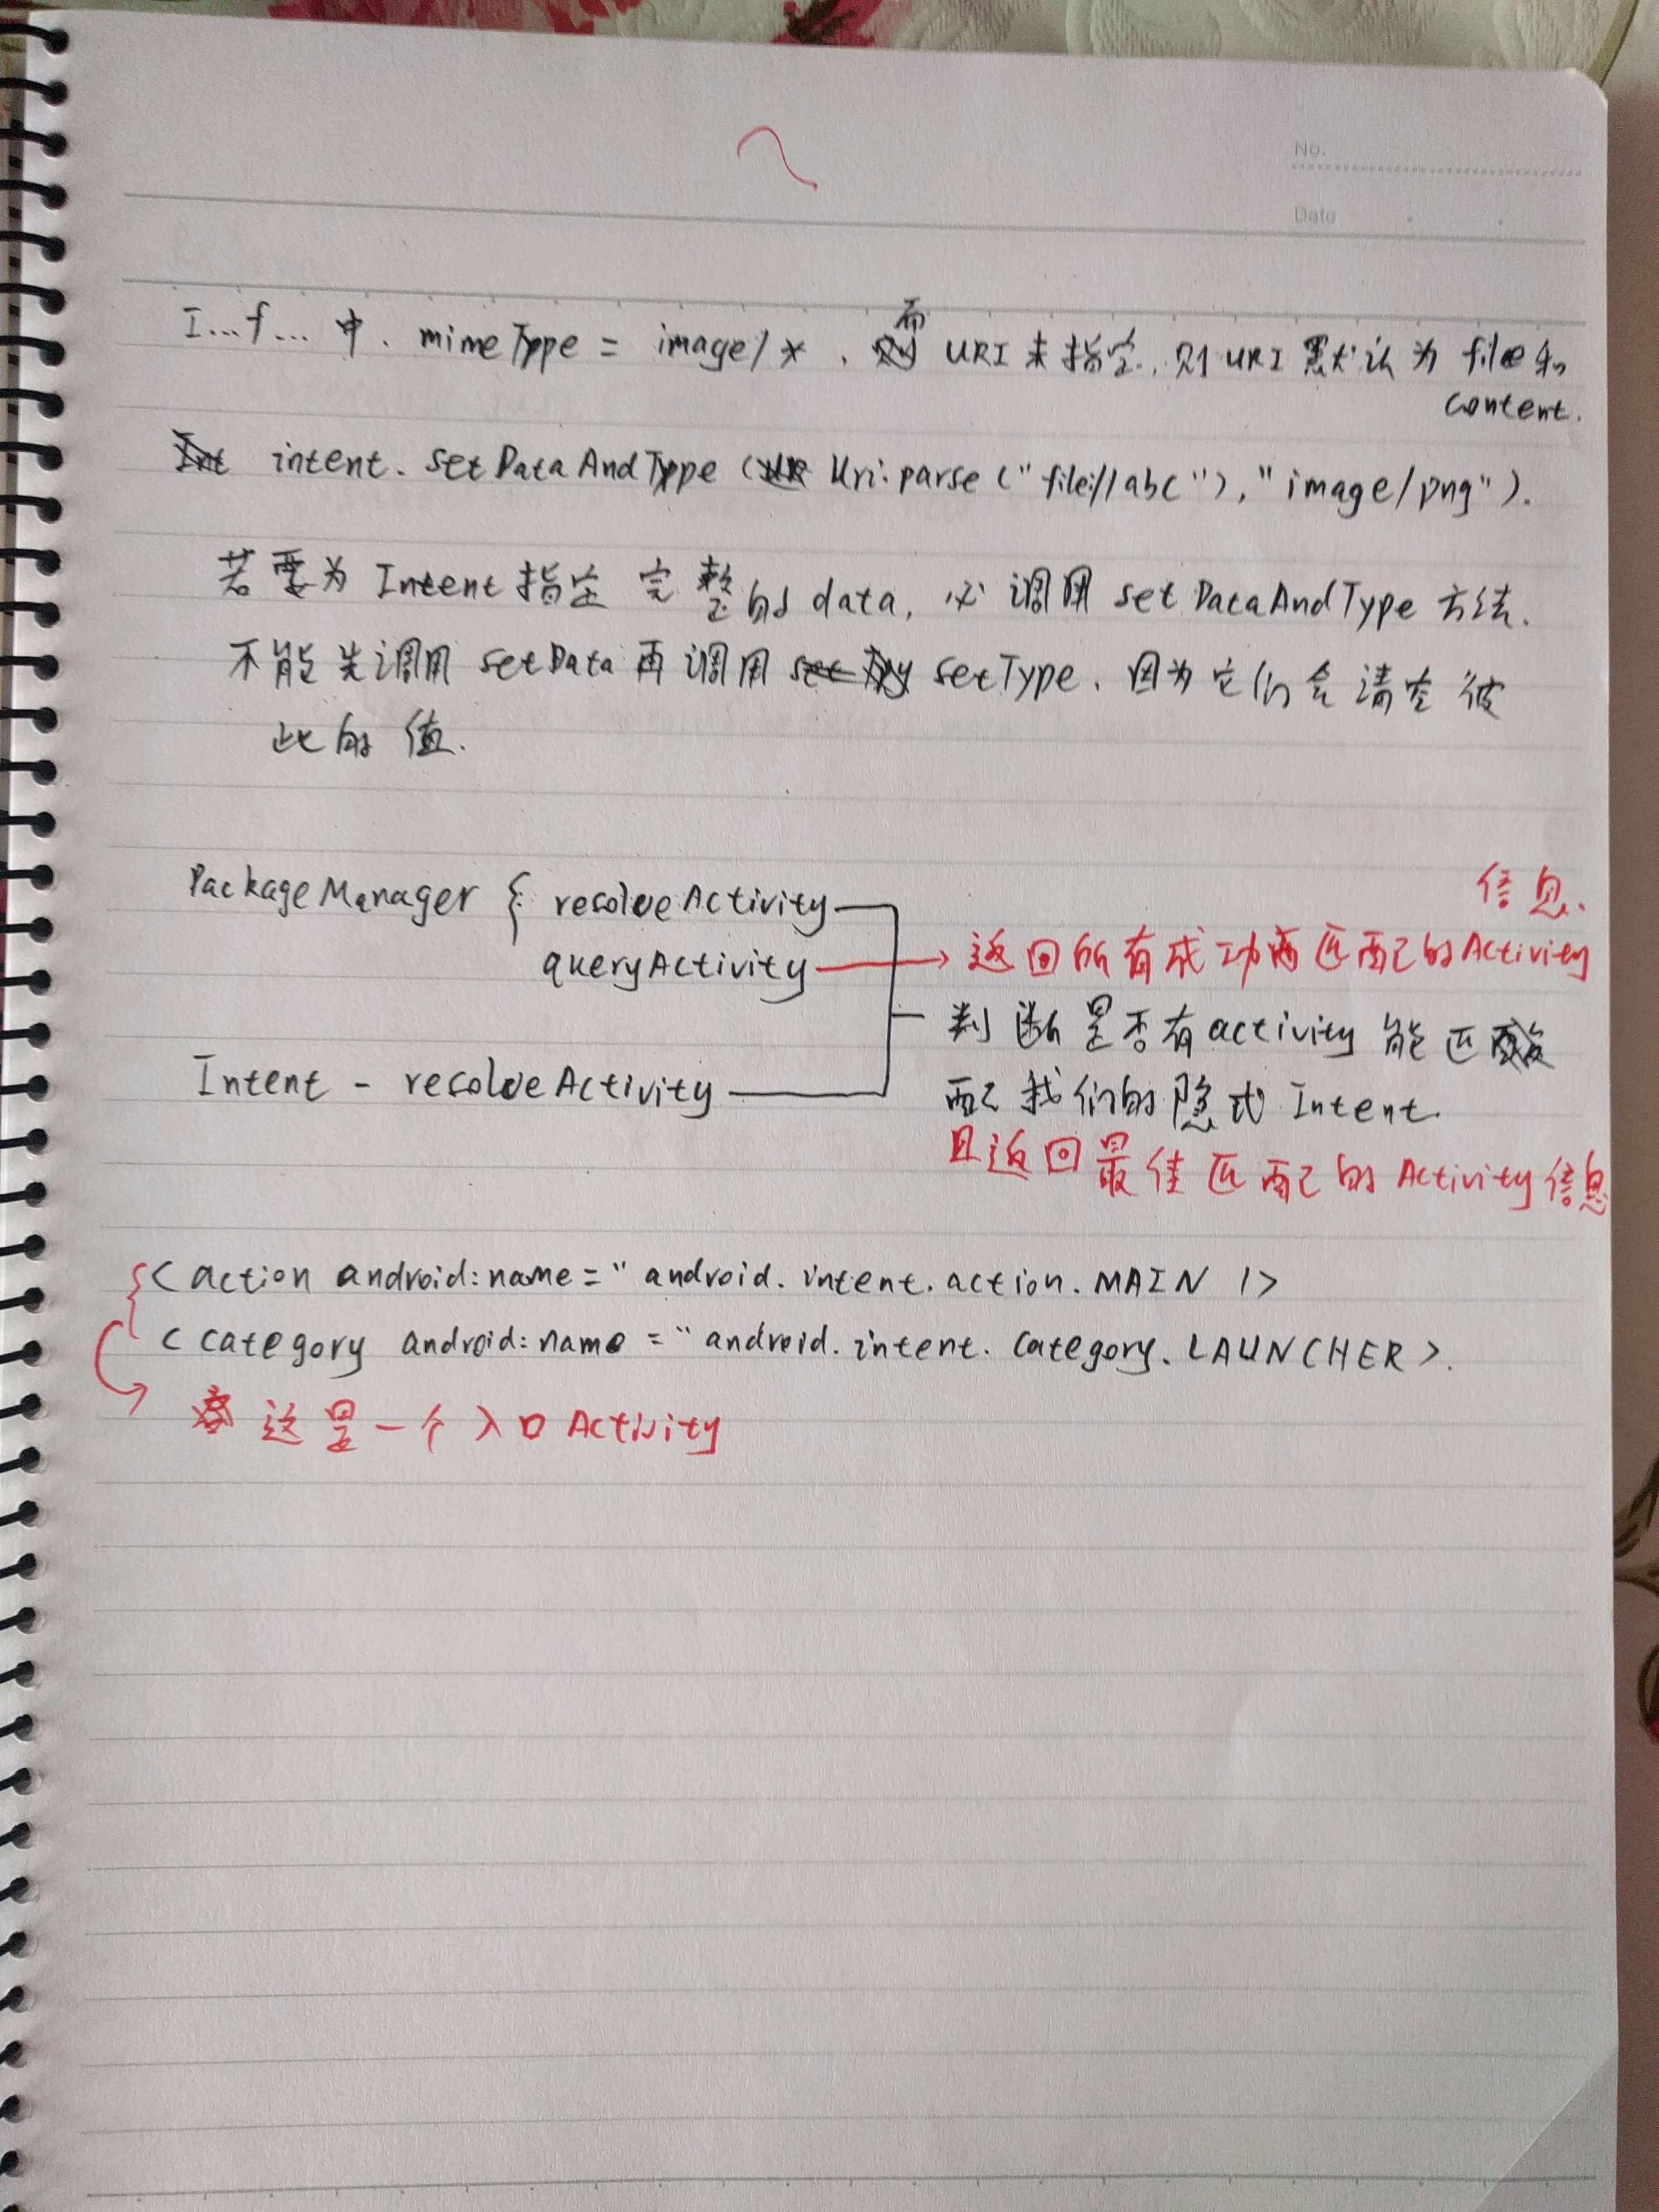 No.
Date
I...f... 中. mimeType = image/*. 而 URI 未指定, 则 URI 默认为 file 和
content.
intent. setDataAndType (Uri.parse ("file://abc"), "image/png").
若要为 Intent 指定 完整的 data, 必 调用 setDataAndType 方法.
不能先调用 setData 再调用 setType. 因为它们会清空彼
此的值.
PackageManager { resolveActivity
信息.
queryActivity → 返回所有成功匹配的Activity
判断是否有activity能匹
Intent - resolveActivity
配我们的隐式 Intent.
且返回最佳匹配的Activity信息
<action android:name=" android. intent. action. MAIN />
<category android:name =" android. intent. category. LAUNCHER>.
这是一个入口Activity